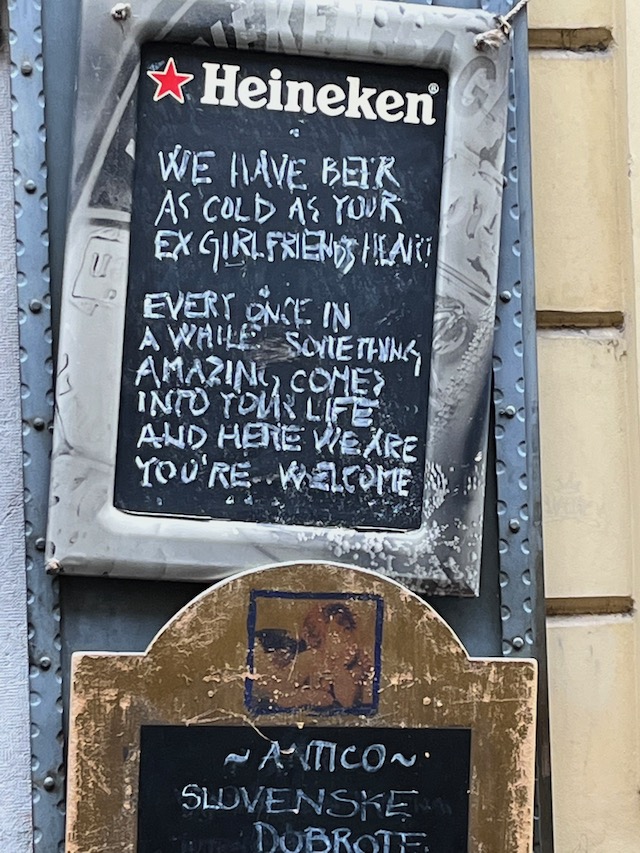 Heineken®
WE HAVE BEER
AS COLD AS YOUR
EX GIRLFRIENDS HEART
EVERY ONCE IN
A WHILE SOMETHING
AMAZING COMES
INTO YOUR LIFE
AND HERE WE ARE
YOU'RE WELCOME
~ ANTICO ~
SLOVENSKE
DOBROTE